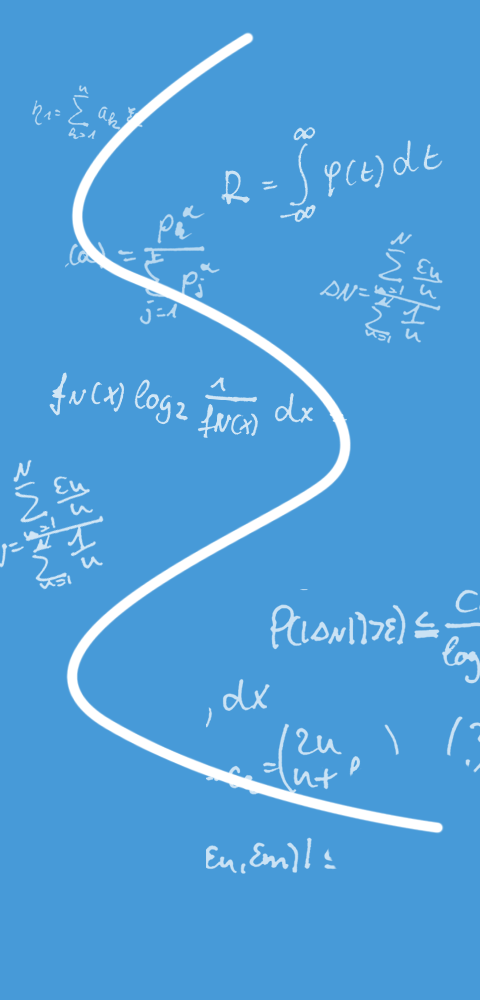 η₁ = ∑ₐ₌₁ⁿ aₖ ξ
R = ∫_{-∞}^{∞} φ(t) dt
(α) = pₖ^α / ∑_{j=1} pⱼ^α
ΔN = ∑_{n=1}^{N} εn/n / ∑_{n=1}^{N} 1/n
fN(x) log₂ 1/fN(x) dx
= ∑_{n=1}^{N} εn/n / ∑_{n=1}^{N} 1/n
P(|ΔN|>ε) ≤ C / log
, dx
=(2n
n+
εn,εm)| ≤